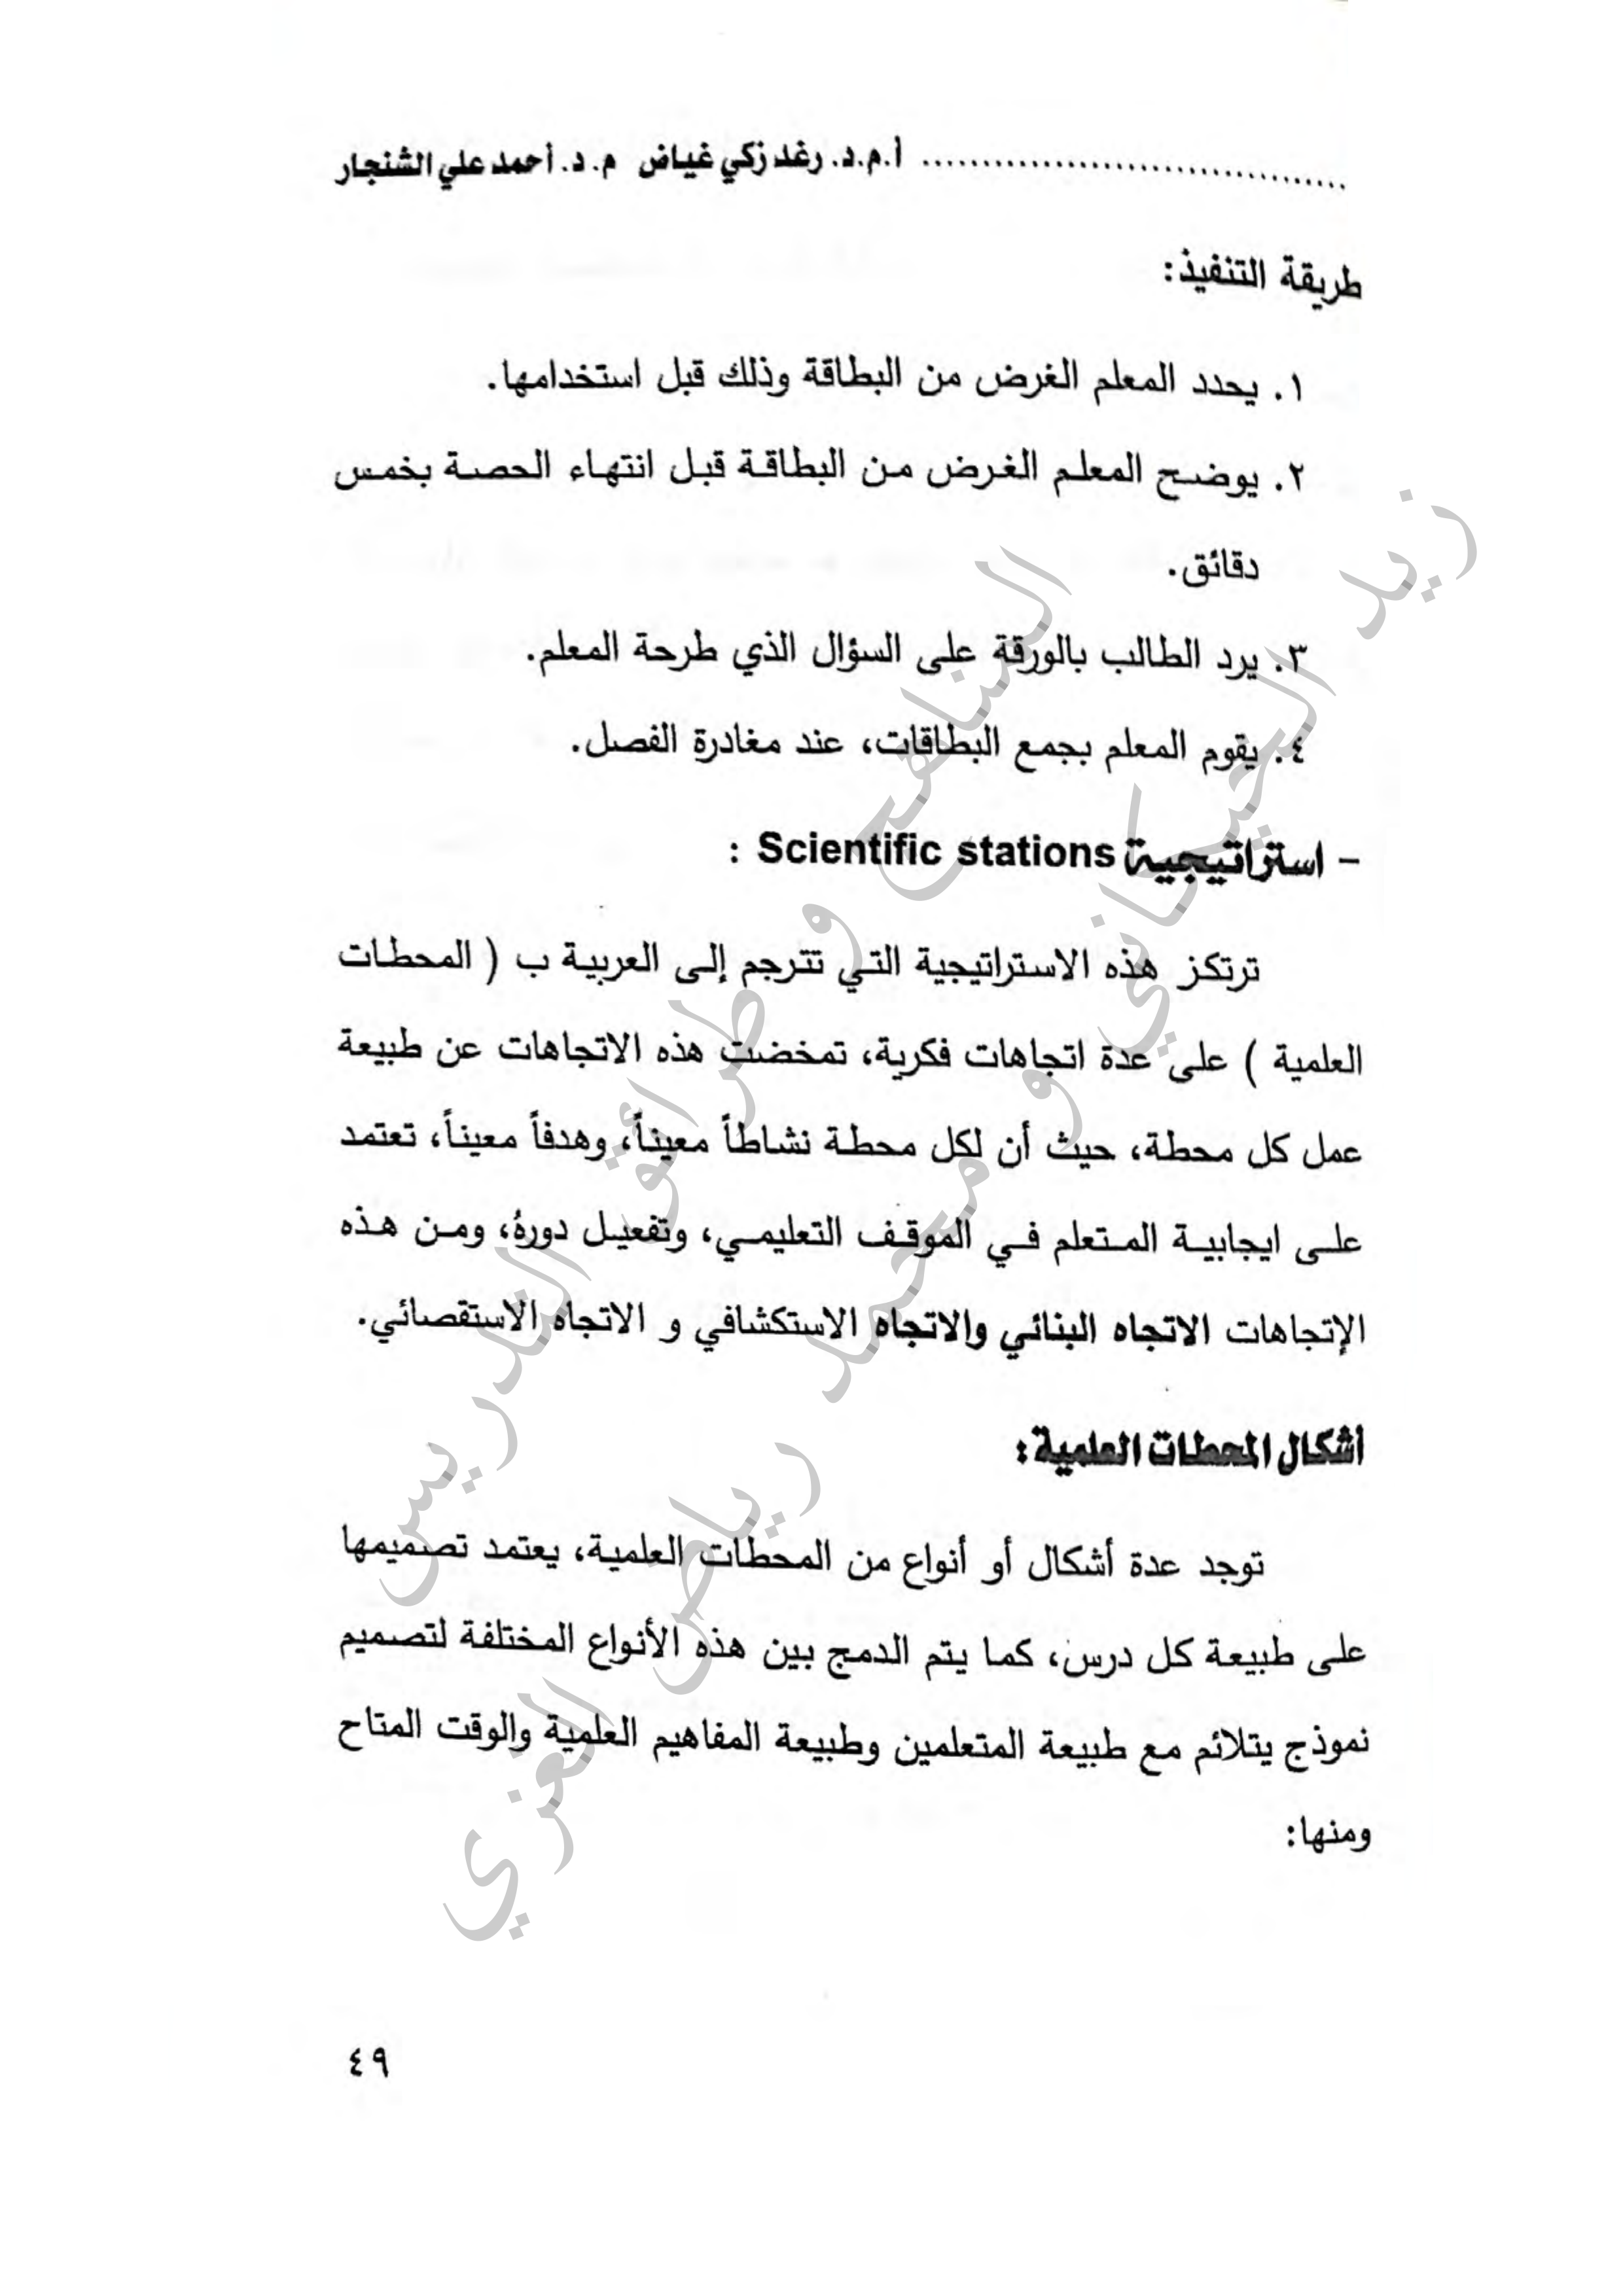 أ.م.د. رغد زكي غياض م. د. أحمد علي الشنجار
طريقة التنفيذ:
١. يحدد المعلم الغرض من البطاقة وذلك قبل استخدامها.
٢. يوضح المعلم الغرض من البطاقة قبل انتهاء الحصة بخمس
دقائق.
٣. يرد الطالب بالورقة على السؤال الذي طرحة المعلم.
٤. يقوم المعلم بجمع البطاقات، عند مغادرة الفصل.
- استراتيجية Scientific stations :
ترتكز هذه الاستراتيجية التي تترجم إلى العربية ب ( المحطات
العلمية ) على عدة اتجاهات فكرية، تمخضت هذه الاتجاهات عن طبيعة
عمل كل محطة، حيث أن لكل محطة نشاطاً معيناً، وهدفاً معيناً، تعتمد
على ايجابية المتعلم في الموقف التعليمي، وتفعيل دورهُ، ومن هذه
الإتجاهات الاتجاه البنائي والاتجاه الاستكشافي و الاتجاه الاستقصائي.
أشكال المحطات العلمية:
توجد عدة أشكال أو أنواع من المحطات العلمية، يعتمد تصميمها
على طبيعة كل درس، كما يتم الدمج بين هذه الأنواع المختلفة لتصميم
نموذج يتلائم مع طبيعة المتعلمين وطبيعة المفاهيم العلمية والوقت المتاح
ومنها:
٤٩
المناهج و طرائق التدريس
زيد الحيكاني و محمد رياض الغزي